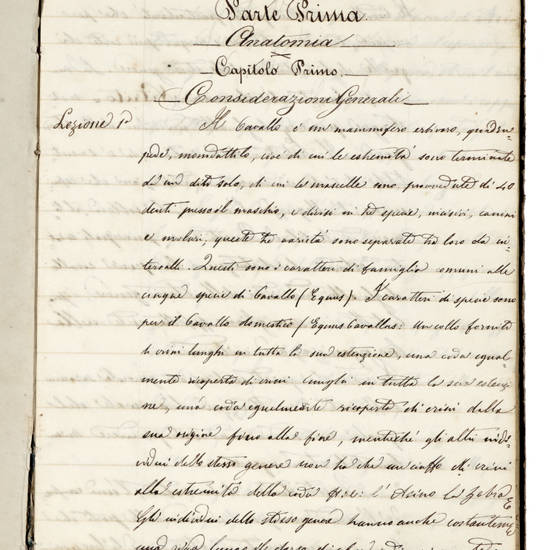 Parte Prima.
Anatomia
Capitolo Primo.
Considerazioni Generali
Lezione 1ª
Il Cavallo è un mammifero erbivoro, quadru-
pede, monodattilo, cioè di cui le estremità sono terminate
da un dito solo, di cui le mascelle sono provvedute di 40
denti presso il maschio, e divisi in tre specie, incisivi, canini
e molari, queste tre varietà sono separate tra loro da in-
tervalli. Questi sono i caratteri di famiglia comuni alle
cinque specie di Cavallo (Equus). I caratteri di specie sono
per il Cavallo domestico (Equus Cavallus: Un collo fornito
di crini lunghi in tutta la sua estenzione, una coda egual-
mente ricoperta di crini lunghi in tutta la sua estenzio
ne, una coda egualmente ricoperta di crini dalla
sua origine fino alla fine, mentrechè gli altri indi-
vidui dello stesso genere non ha che un ciuffo di crini
alla estremità della coda l'Asino la Zebra E
Gli individui dello stesso genere hanno anche costantemen
una riga lungo il dorso di